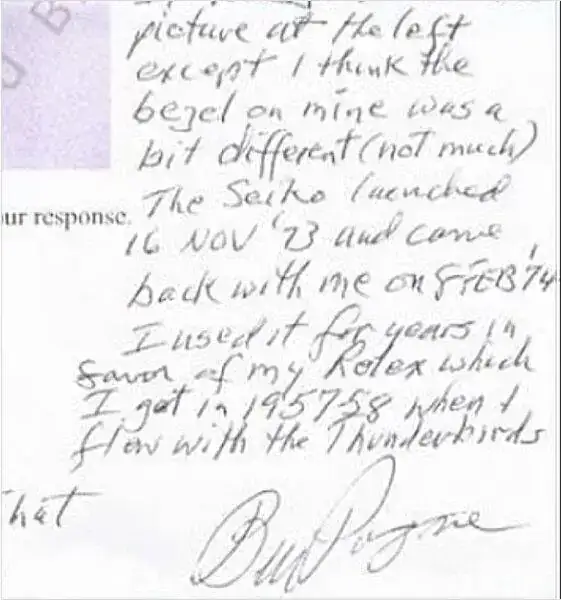 picture at the left
except I think the
bezel on mine was a
bit different (not much)
The Seiko launched
our response.
16 NOV '73 and came
back with me on 8 FEB '74
I used it for years in
favor of my Rolex which
I got in 1957-58 when I
flew with the Thunderbirds
that